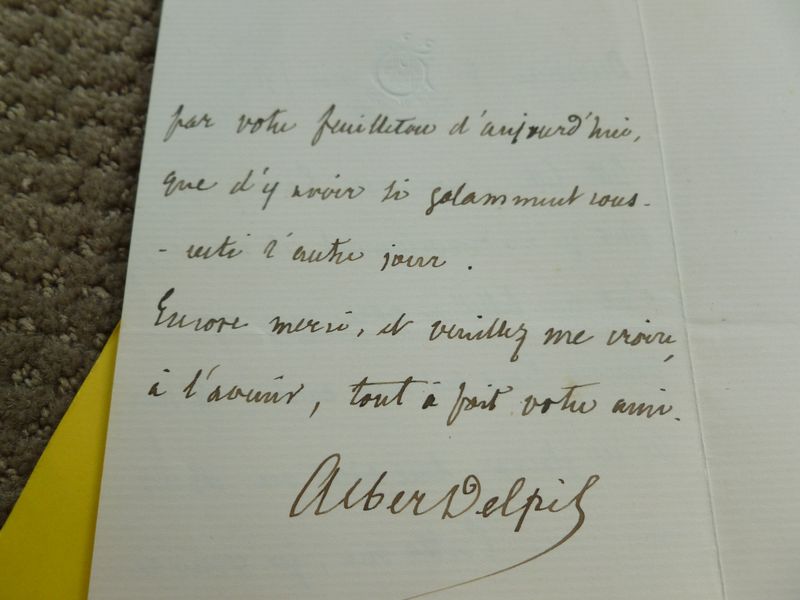 par votre feuilleton d'aujourd'hui,
que d'y avoir si galamment cons-
- enti l'autre jour.
Encore merci, et veuillez me croire,
à l'avenir, tout à fait votre ami.
Albert Delpit